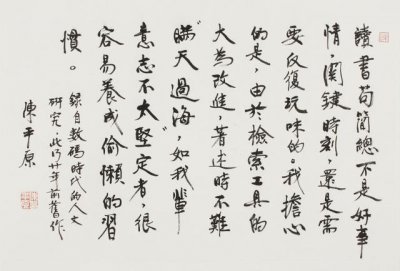 讀書苟簡總不是好事
情。關鍵時刻，還是需
要反復玩味的。我擔心
的是，由於檢索工具的
大為改進，著述時不難
“瞞天過海”，如我輩
意志不太堅定者，很
容易養成偷懶的習
慣。
錄自數碼時代的人文
研究，此乃廿年前舊作
陳平原